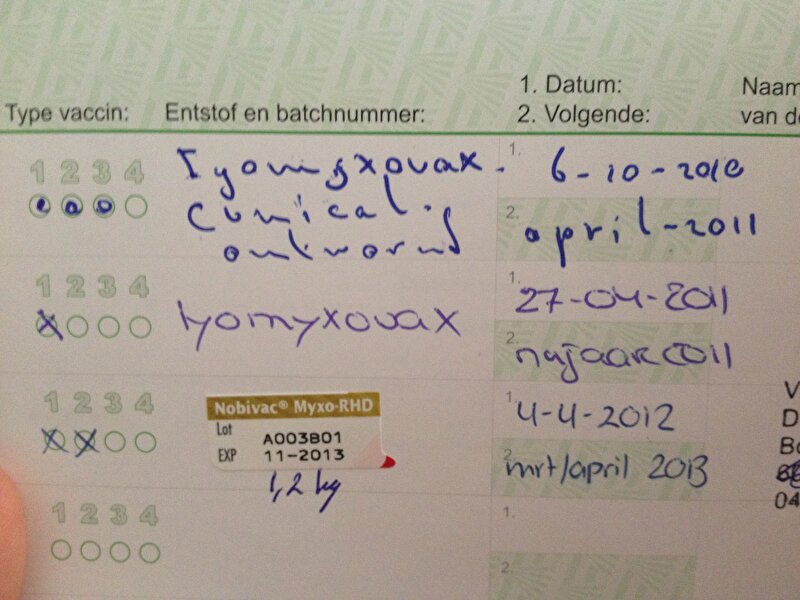 Type vaccin: Entstof en batchnummer: 1. Datum: Naam
2. Volgende: van de
1 2 3 4 Lyomyxovax. 1. 6-10-2010
Cunical.
ontwormd 2. april-2011
1 2 3 4 lyomyxovax 1. 27-04-2011
2. najaar 2011
1 2 3 4 Nobivac® Myxo-RHD 1. 4-4-2012
Lot A003B01
EXP 11-2013
1,2 kg 2. mrt/april 2013
1 2 3 4 1.
2.
V
D
Bo
04